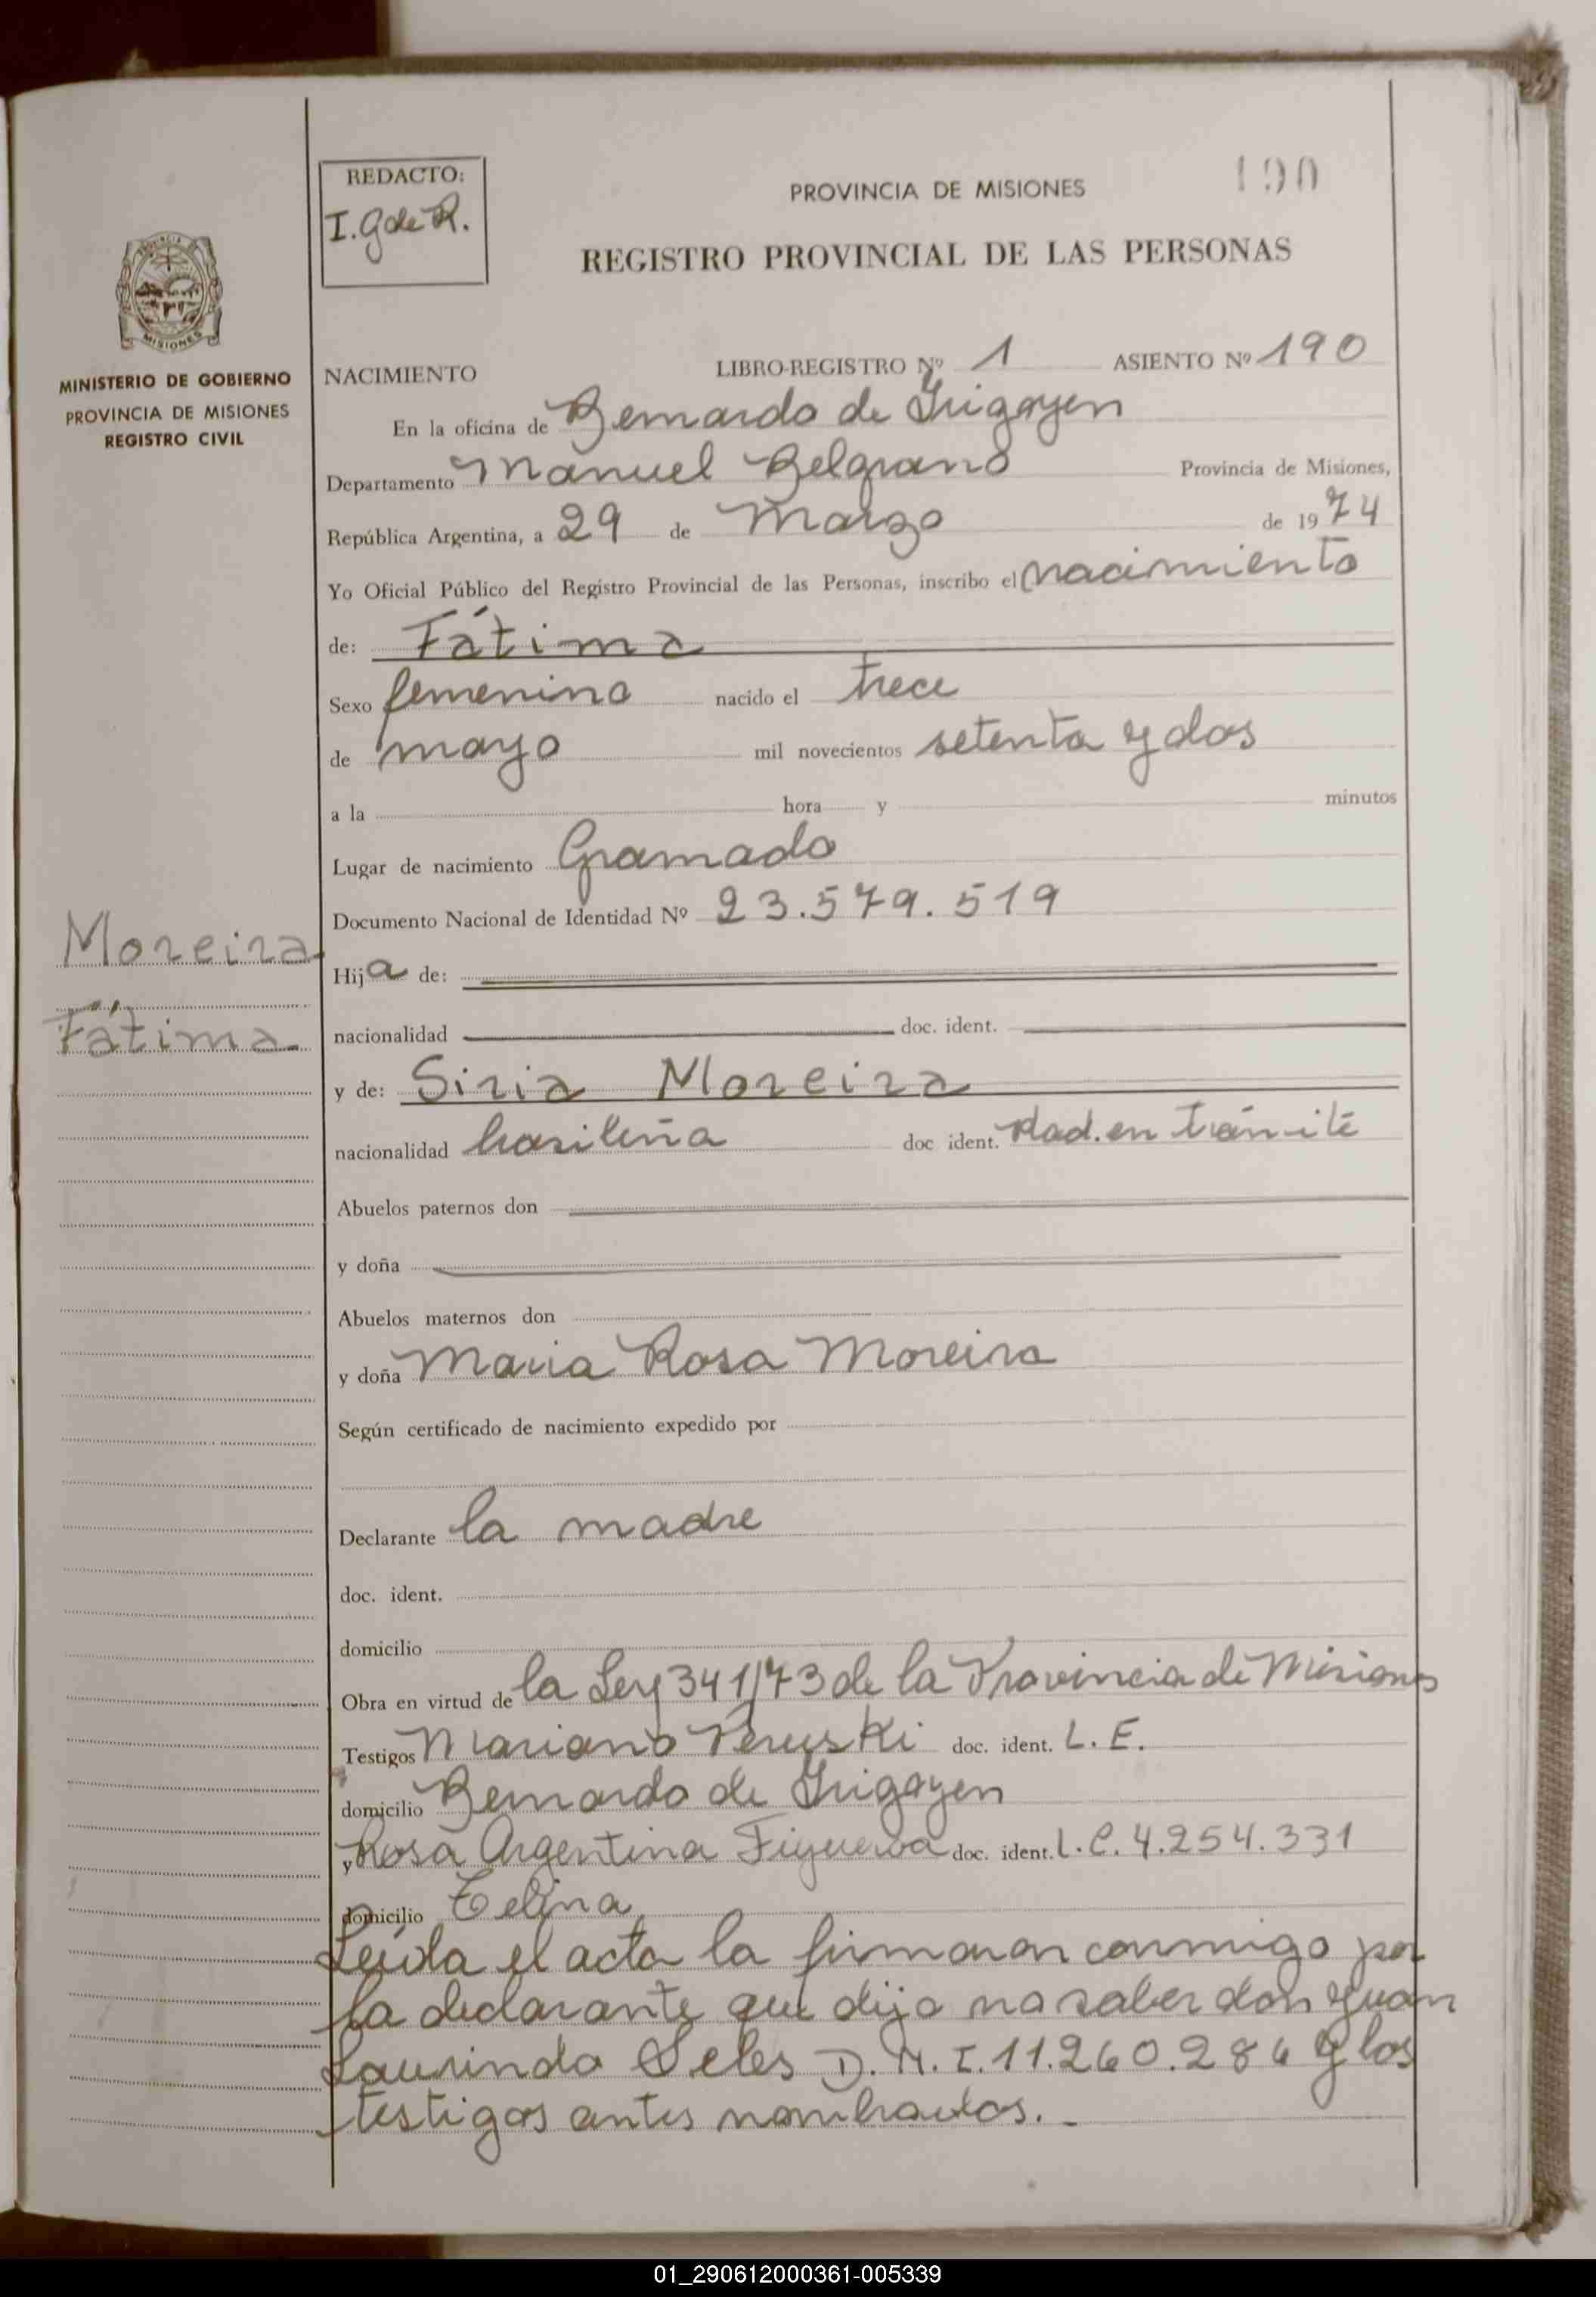 REDACTO:
I. G de R.
PROVINCIA DE MISIONES
190
REGISTRO PROVINCIAL DE LAS PERSONAS
MISIONES
MINISTERIO DE GOBIERNO
PROVINCIA DE MISIONES
REGISTRO CIVIL
NACIMIENTO LIBRO-REGISTRO Nº 1 ASIENTO Nº 190
En la oficina de Bernardo de Irigoyen
Departamento Manuel Belgrano Provincia de Misiones,
República Argentina, a 29 de Marzo de 1974
Yo Oficial Público del Registro Provincial de las Personas, inscribo el nacimiento
de: Fátima
Sexo femenino nacido el trece
de mayo mil novecientos setenta y dos
a la hora y minutos
Lugar de nacimiento Gramado
Documento Nacional de Identidad Nº 23.579.519
Moreira
Fátima
Hija de:
nacionalidad doc. ident.
y de: Siria Moreira
nacionalidad brasileña doc ident. Rad. en trámite
Abuelos paternos don
y doña
Abuelos maternos don
y doña Maria Rosa Moreira
Según certificado de nacimiento expedido por
Declarante la madre
doc. ident.
domicilio
Obra en virtud de la Ley 341/73 de la Provincia de Misiones
Testigos Mariano Peruski doc. ident. L. E.
domicilio Bernardo de Irigoyen
y Rosa Argentina Figueroa doc. ident. L.C. 4.254.331
domicilio
Leída el acta la firmaran conmigo por
la declarante que dijo no saber don Juan
Laurindo D.N.I. 11.260.286 y los
testigos antes nombrados.
01_290612000361-005339